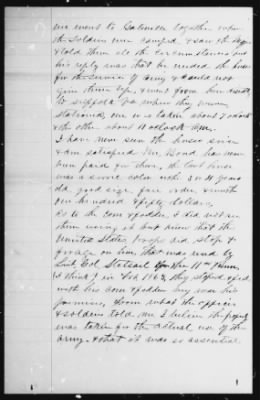 we went to Gatesville together where
the soldiers were camped & saw the
& told them all the circumstances but
his reply was that he needed the horses
for the service of Army & could not
give them up, & went from here
to Suffolk Va where they were
stationed, one was taken about 7 o'clock
& the other about 11 o'clock
I have never seen the horses since
& am satisfied Mr. Bond has never
been paid for them, the last horse
was a sorrel color mch. 3 or 4 years
old good size, fair order, & worth
one hundred & fifty dollars.
As to the corn & fodder, I did not see
them using it but know that the
United States troops did stop &
forage on him, that was used by
Lieut. Col. Stetzel 11th Penn.
(I think) in Feb 1863, they stopped & fed
with his corn & fodder buy near his
premises, & from what the officers
& soldiers told me I believe the property
was taken for the actual use of the
army. & that it was so essential.